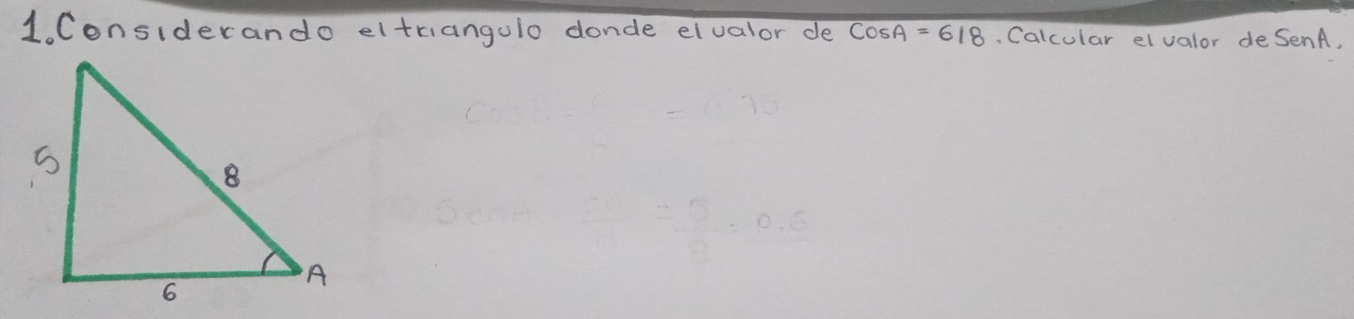 1.Considerando el triangulo donde el valor de CosA = 6/8. Calcular el valor de SenA.
5
8
A
6
= 0.75
Sen
= 5/8 = 0.6